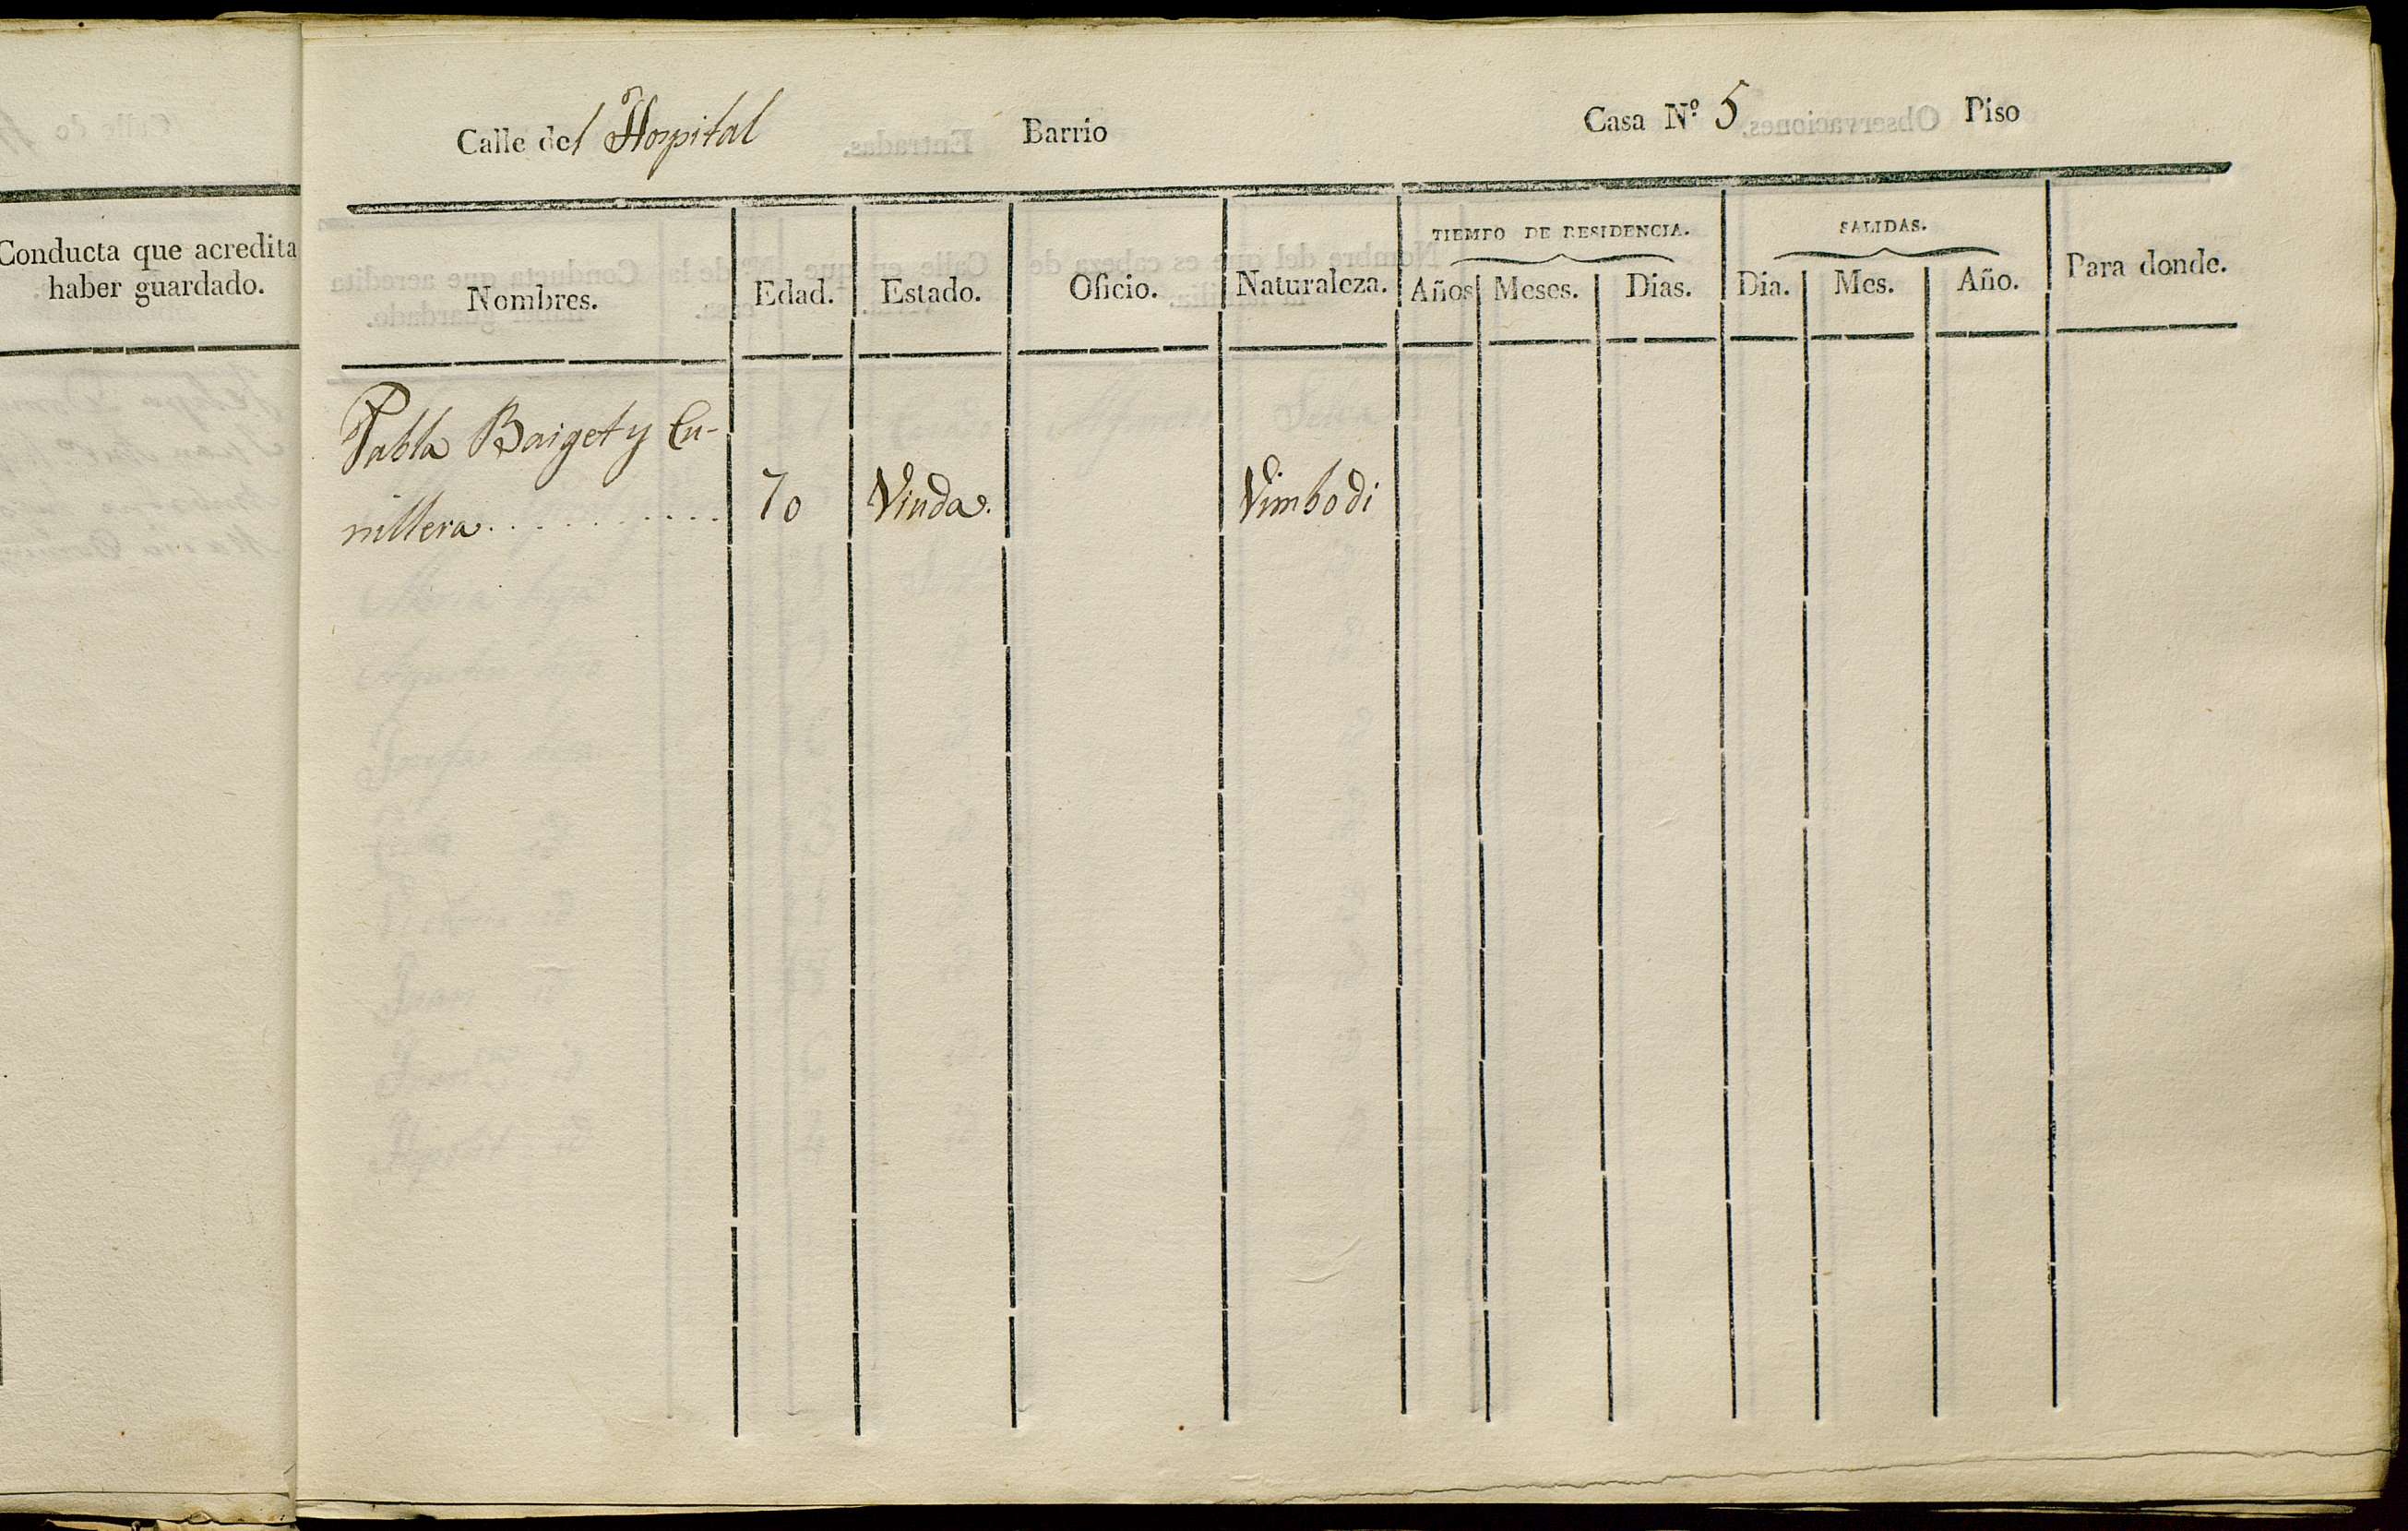 Conducta que acredita
haber guardado.
Calle del Hospital Barrio Casa Nº 5 Piso
Nombres. Edad. Estado. Oficio. Naturaleza. TIEMPO DE RESIDENCIA. SALIDAS. Para donde.
Años Meses. Dias. Dia. Mes. Año.
Pabla Baiget y Cu-
nillera. . . . . . . . . . . 70 Viuda. Vimbodi